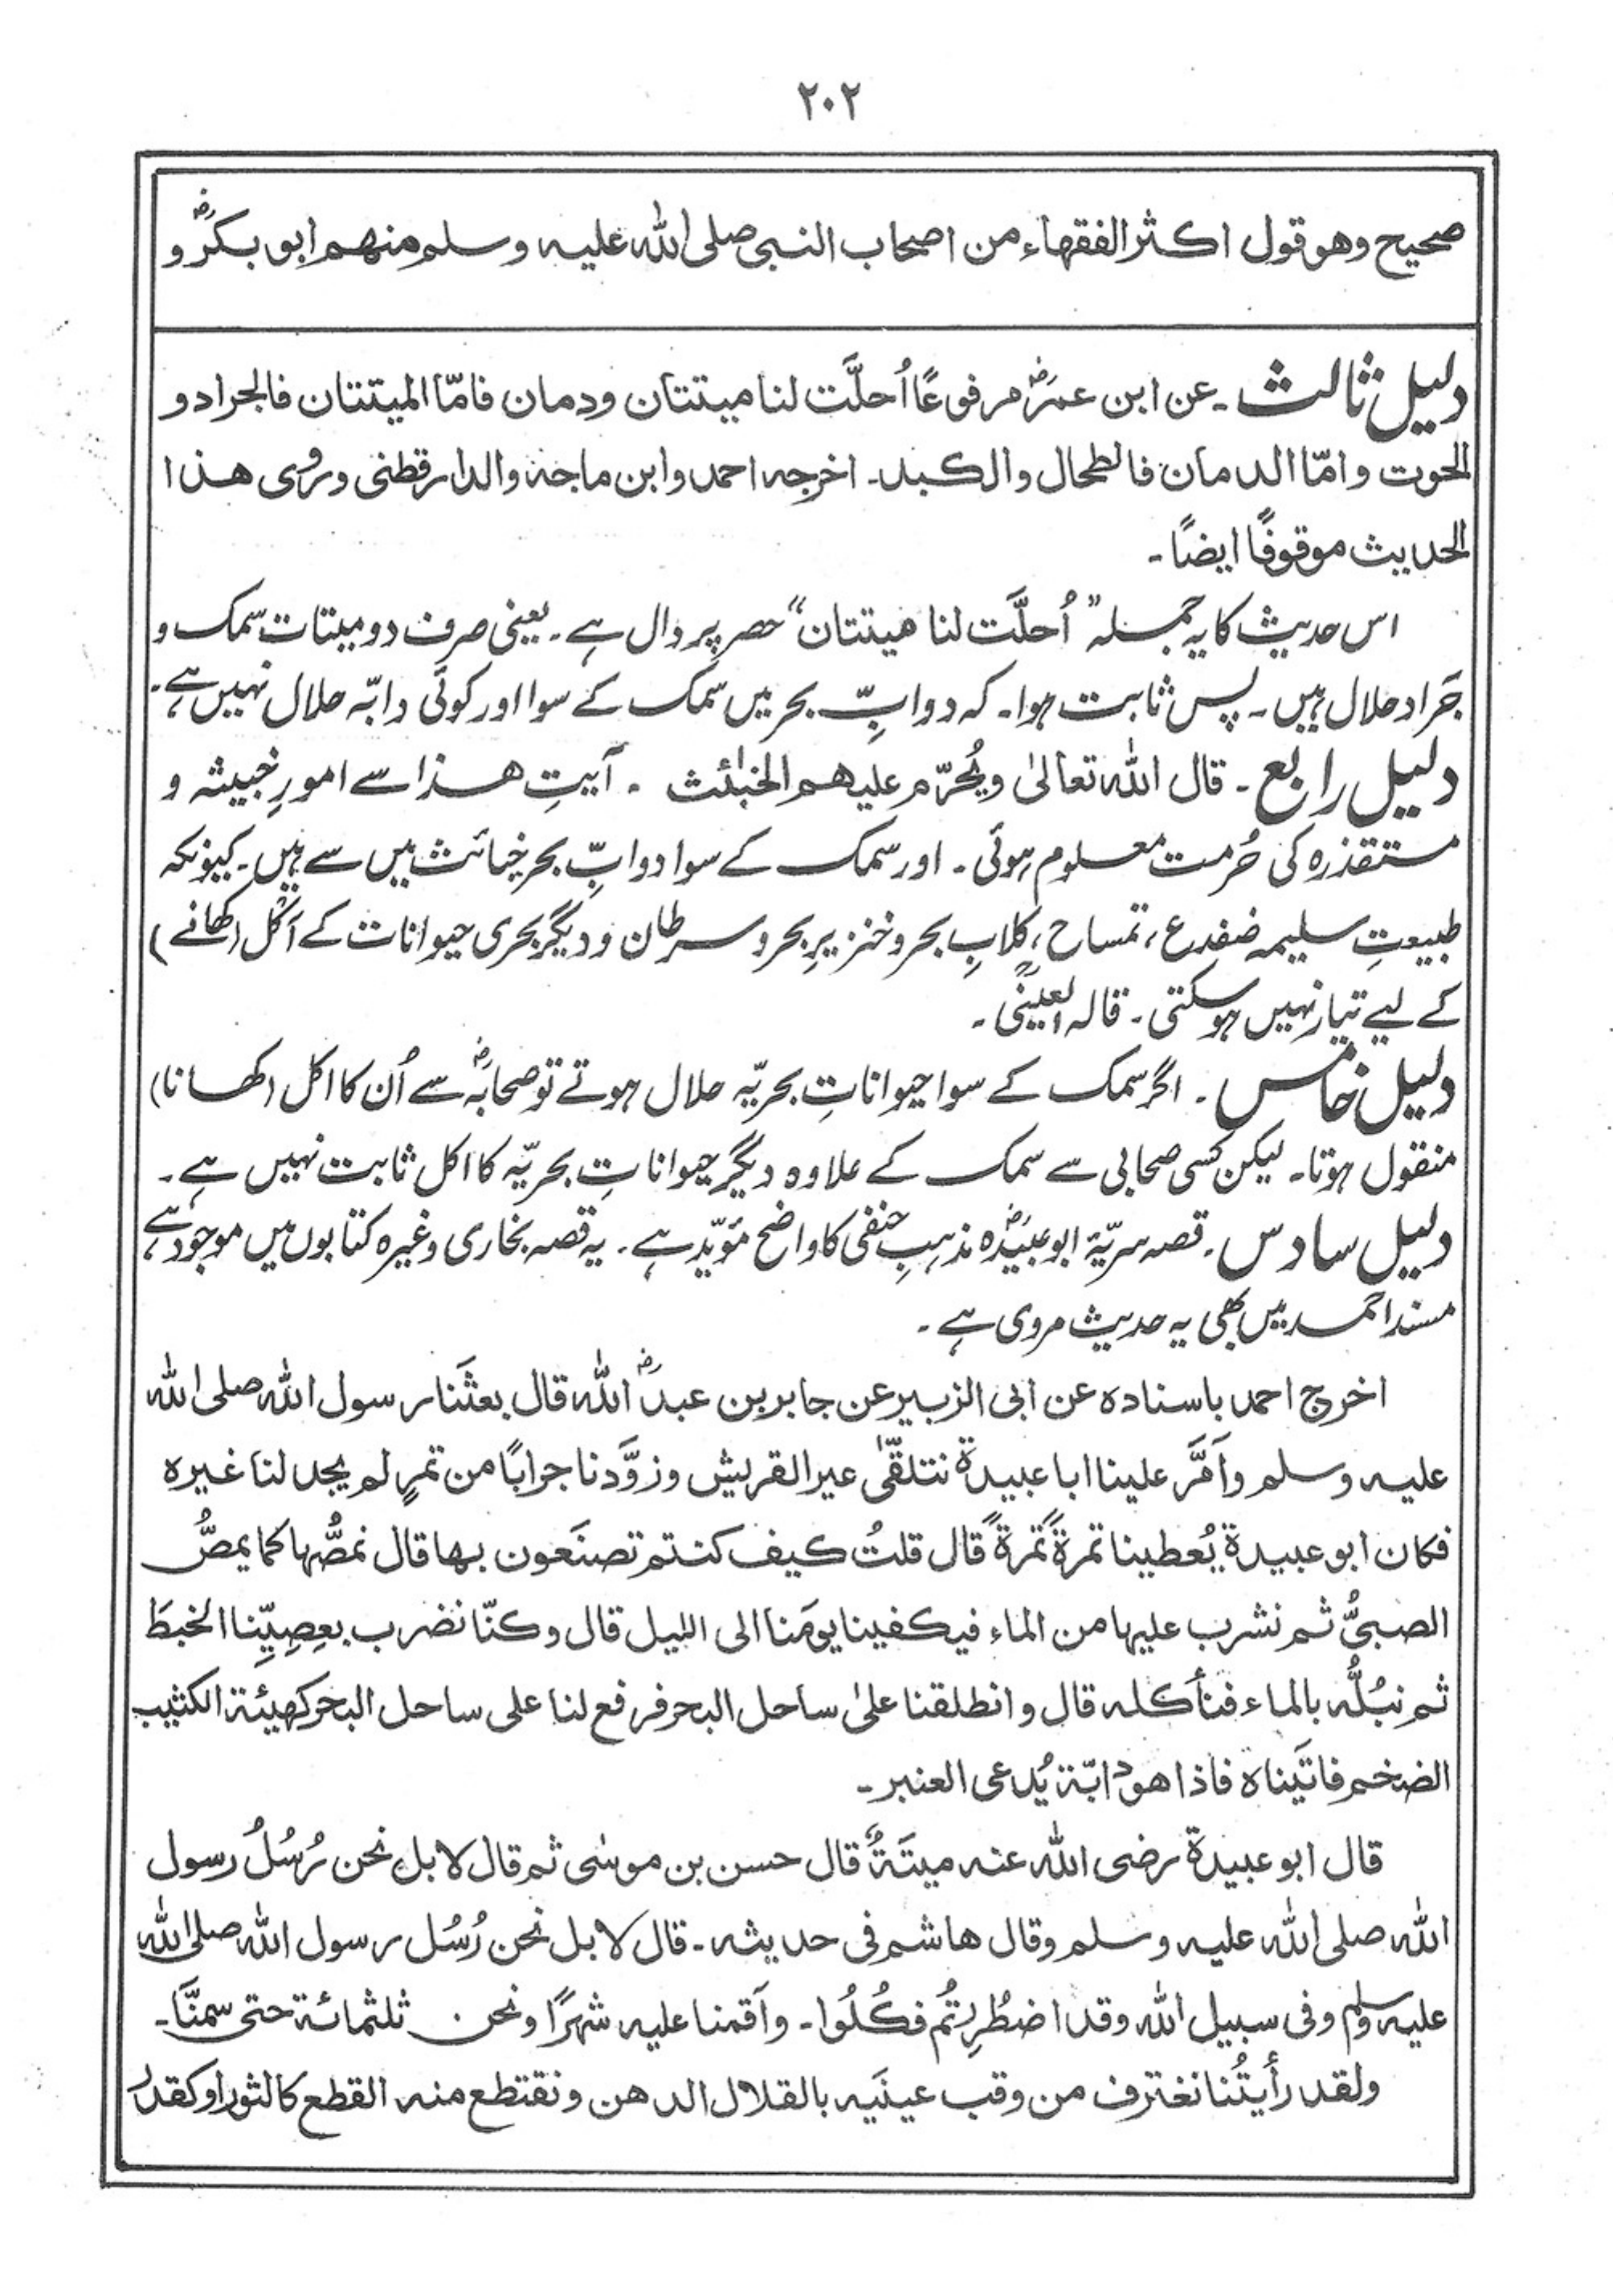 ۲۰۲
صحیح وهو قول اکثر الفقهاء من اصحاب النبی صلی الله علیہ وسلم منهم ابو بکرؓ و
دلیل ثالث ۔ عن ابن عمرؓ مرفوعًا اُحلَّت لنا میتتان ودمان فامّا المیتتان فالجراد و
الحوت وامّا الدمان فالطحال والکبد۔ اخرجہ احمد وابن ماجۃ والدارقطنی ورُوی هذا
الحدیث موقوفًا ایضًا۔
اس حدیث کا یہ جملہ ”اُحلَّت لنا میتتان“ حصر پر دال ہے۔ یعنی صرف دو میتات سمک و
جَراد حلال ہیں۔ پس ثابت ہوا۔ کہ دوابِّ بحر میں سمک کے سوا اور کوئی دابّہ حلال نہیں ہے۔
دلیل رابع ۔ قال الله تعالیٰ ویُحرّم علیهم الخبٰئث ۔ آیتِ هذا سے امورِ خبیثہ و
مستقذرہ کی حُرمت معلوم ہوئی۔ اور سمک کے سوا دوابِّ بحر خبائث میں سے ہیں۔ کیونکہ
طبیعتِ سلیمہ ضفدع، تمساح، کلابِ بحر و خنزیرِ بحر و سرطان و دیگر بحری حیوانات کے اَکل (کھانے)
کے لیے تیار نہیں ہوسکتی۔ قالہ العینیؒ۔
دلیل خامس ۔ اگر سمک کے سوا حیواناتِ بحریّہ حلال ہوتے تو صحابہؓ سے اُن کا اکل (کھانا)
منقول ہوتا۔ لیکن کسی صحابی سے سمک کے علاوہ دیگر حیواناتِ بحریّہ کا اکل ثابت نہیں ہے۔
دلیل سادس ۔ قصہ سریّۃ ابوعبیدہؓ مذہبِ حنفی کا واضح مؤیّد ہے۔ یہ قصہ بخاری وغیرہ کتابوں میں موجود ہے
مسند احمد میں بھی یہ حدیث مروی ہے۔
اخرج احمد باسنادہ عن ابی الزبیر عن جابر بن عبدؓ الله قال بعثَنا رسول الله صلی الله
علیہ وسلم واَمَّر علینا ابا عبیدۃ نتلقّٰی عیر القریش وزوَّدنا جرابًا من تمرٍ لم یجد لنا غیرہ
فکان ابو عبیدۃ یُعطینا تمرۃً تمرۃً قال قلتُ کیف کنتم تصنَعون بها قال نمصُّها کما یمصُّ
الصبیُّ ثم نشرب علیها من الماء فیکفینا یومَنا الی اللیل قال وکنّا نضرب بعِصِیِّنا الخبطَ
ثم نبُلُّہ بالماء فنأکلہ قال وانطلقنا علیٰ ساحل البحر فرفع لنا علی ساحل البحر کهیئۃ الکثیب
الضخم فاتَیناہ فاذا هو دابّۃ یُدعی العنبر۔
قال ابو عبیدۃ رضی الله عنہ میتَۃٌ قال حسن بن موسٰی ثم قال لا بل نحن رُسُلُ رسول
الله صلی الله علیہ وسلم وقال هاشم فی حدیثہ۔ قال لا بل نحن رُسُل رسول الله صلی الله
علیہ وسلم وفی سبیل الله وقد اضطُرِرتُم فکُلُوا۔ واَقمنا علیہ شهرًا ونحن ثلثمائۃ حتی سمنَّا۔
ولقد رأیتُنا نغترف من وقب عینَیہ بالقلال الدهن ونقتطع منہ القطع کالثور او کقدر